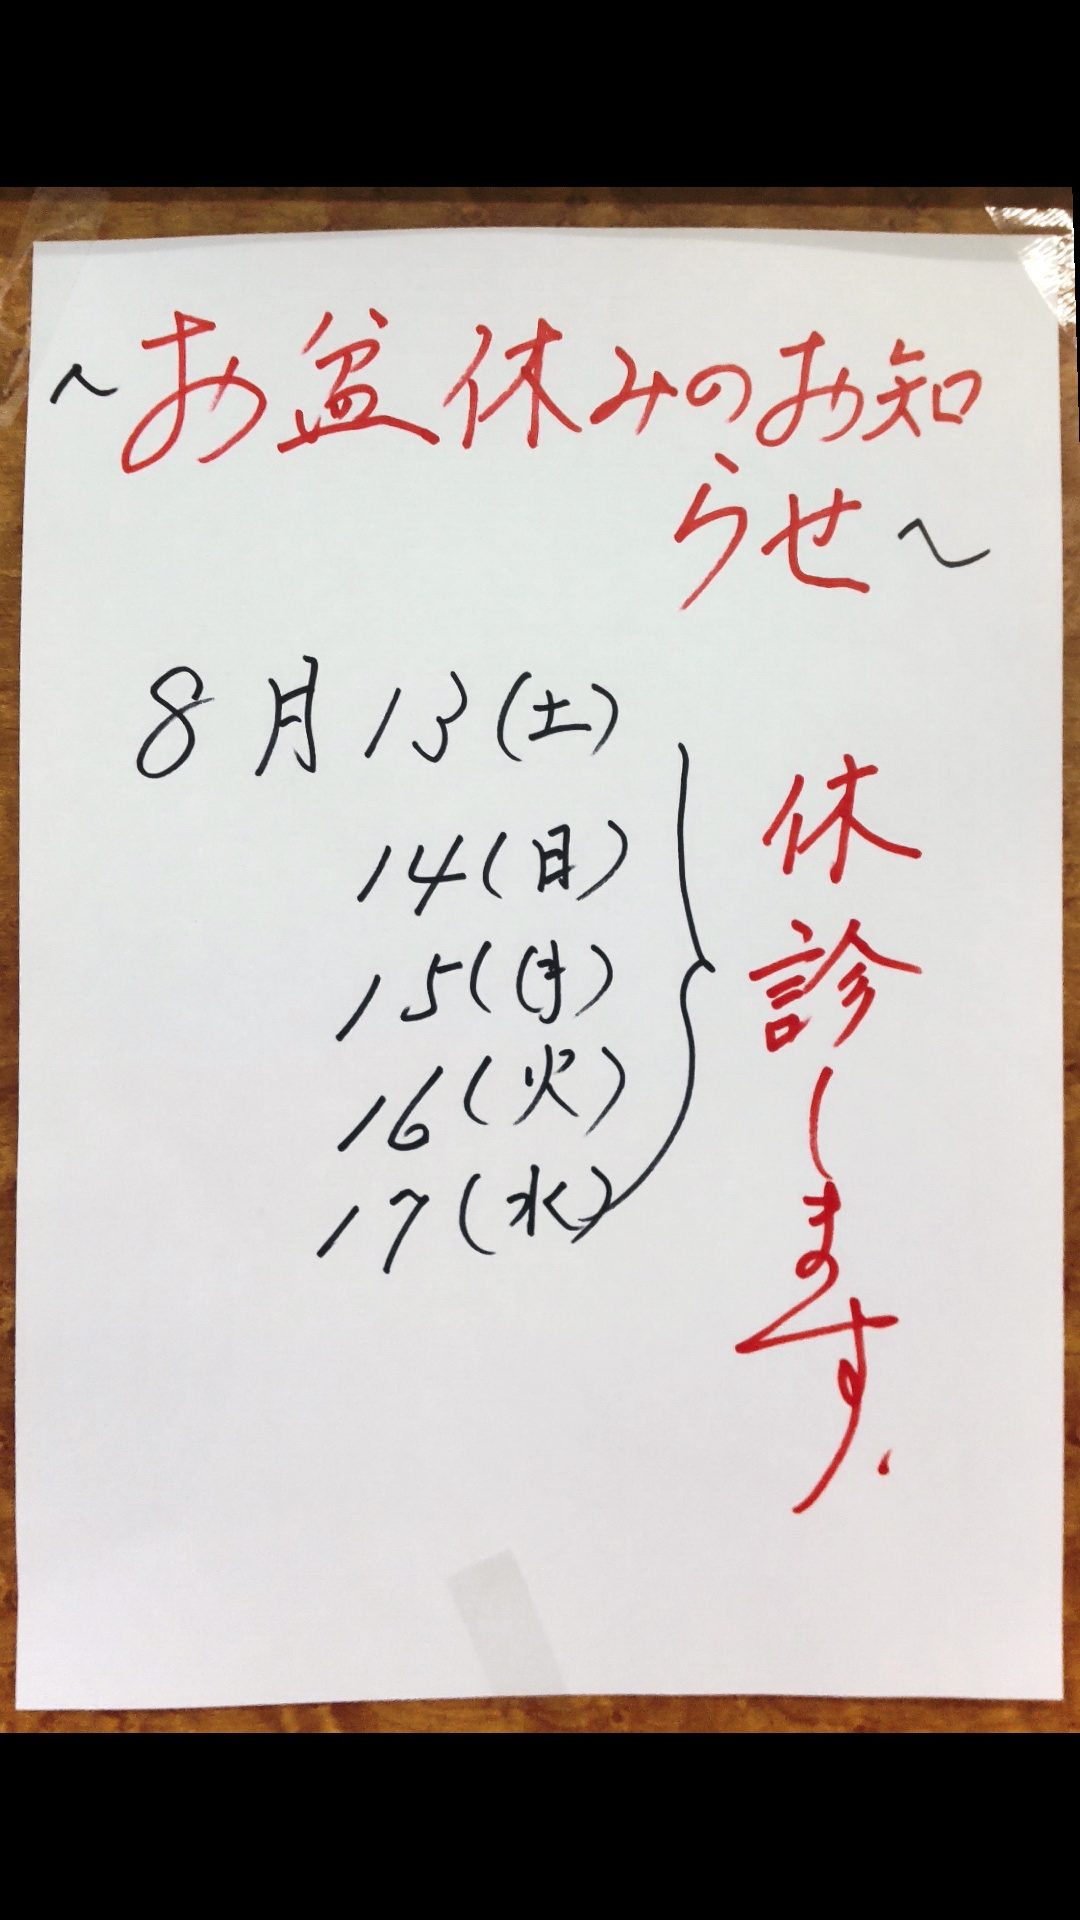 ~お盆休みのお知
らせ~
8月13(土)
14(日)
15(月)
16(火)
17(水)
休診します.